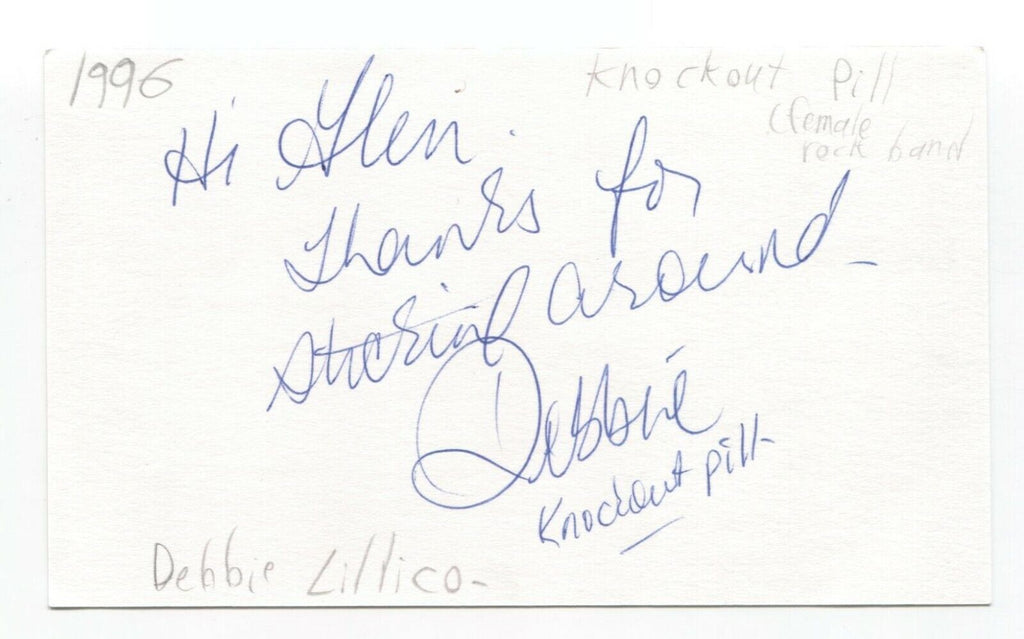 1996
Knockout Pill
(female
rock band
Hi Glen.
thanks for
sticking around-
Debbie
Knockout pill-
Debbie Lillico-